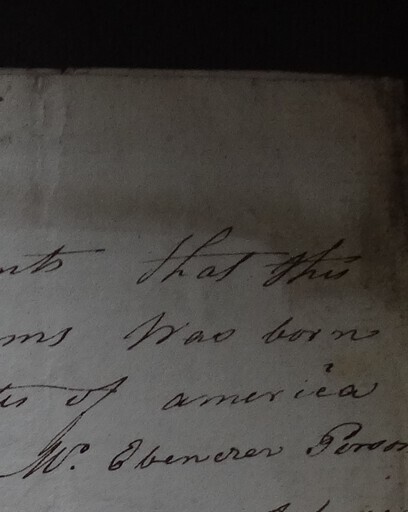 nts that this
ms Was born
tes of america
Mr. Ebenezer Porson